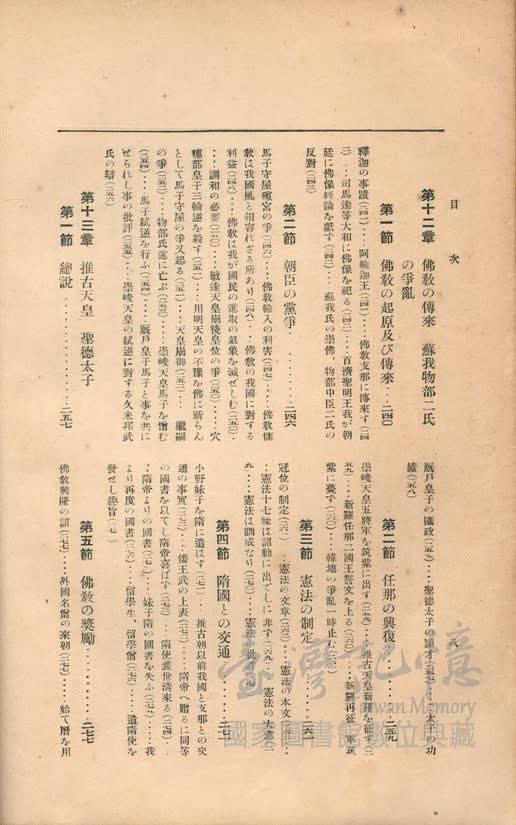 目次
八
第十二章 佛教の傳來 蘇我物部二氏
の爭亂
第一節 佛教の起原及び傳來‥二四〇
釋迦の事蹟(二四〇)‥‥阿輸迦王(二四一)‥‥佛教支那に傳來す(二四
二)‥‥司馬達等大和に佛像を祀る(二四二)‥‥百濟聖明王我が朝
廷に佛像經論を獻す(二四三)‥‥蘇我氏の崇佛、物部中臣二氏の
反對(二四三)
第二節 朝臣の黨爭‥‥‥‥二四六
馬子守屋殯宮の爭(二四六)‥‥佛教輸入の利害(二四七)‥‥佛教儒
敎は我國風と相容れざる所あり(二四八)‥‥佛教の我國に對する
利益(二四八)‥‥佛教は我が國民の進取の氣象を減ぜしむ(二五〇)‥
‥‥調和の必要(二五〇)‥‥敏達天皇崩後皇位の爭(二五〇)‥‥穴
穗部皇子三輪逆を殺す(二五一)‥‥用明天皇の不豫を佛に祈らん
として馬子守屋の爭又起る(二五二)‥‥天皇崩御(二五三)‥‥繼嗣
の爭(二五三)‥‥物部氏遂に亡ぶ(二五三)‥‥崇峻天皇馬子を憎む
(二五四)‥‥馬子弑逆を行ふ(二五四)‥‥厩戶皇子馬子と事を共に
せられし事の批評(二五五)‥‥崇峻天皇の弑逆に對する久米邦武
氏の辯(二五六)
第十三章 推古天皇 聖德太子
第一節 總說‥‥‥‥‥‥二五七
厩戶皇子の攝政(二五七)‥‥聖德太子の穎才(二五七)‥‥太子の功
績(二五八)
第二節 任那の興復‥‥‥‥二五九
崇峻天皇五將軍を筑紫に出す(二五九)‥‥推古天皇新羅を征す(二
五九)‥‥新羅任那二國王誓文を上る(二六〇)‥‥新羅再征、軍筑
紫に薨す(二六〇)‥‥韓地の爭亂一時止む(二六一)
第三節 憲法の制定‥‥‥‥二六一
冠位の制定(二六一)‥‥憲法の文章(二六三)‥‥憲法の本文(二六三)‥
‥‥憲法十七條は詔勅に出でしに非ず(二六九)‥‥憲法の大意(二
六九)‥‥憲法は訓戒なり(二七〇)‥‥憲法の批評(二七〇)
第四節 隋國との交通‥‥‥二七一
小野妹子を隋に遣はす(二七一)‥‥推古朝以前我國と支那との交
通の事實(二七二)‥‥倭王武の上表(二七二)‥‥隋帝へ贈るに同等
の國書を以てし隋帝喜ばず(二七三)‥‥隋使裴世淸來る(二七四)‥‥
‥‥隋帝よりの國書(二七四)‥‥妹子隋の國書を失ふ(二七五)‥‥我
より再度の國書(二七六)‥‥留學生、留學僧(二七六)‥‥遣隋使を
發せし趣旨(二七七)
第五節 佛敎の奬勵‥‥‥‥二七七
佛敎興隆の詔(二七七)‥‥外國名僧の來朝(二七七)‥‥始て曆を用
臺灣記憶
Taiwan Memory
國家圖書館數位典藏